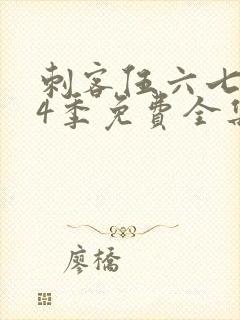 刺客伍六七
4季免费全集
廖橋